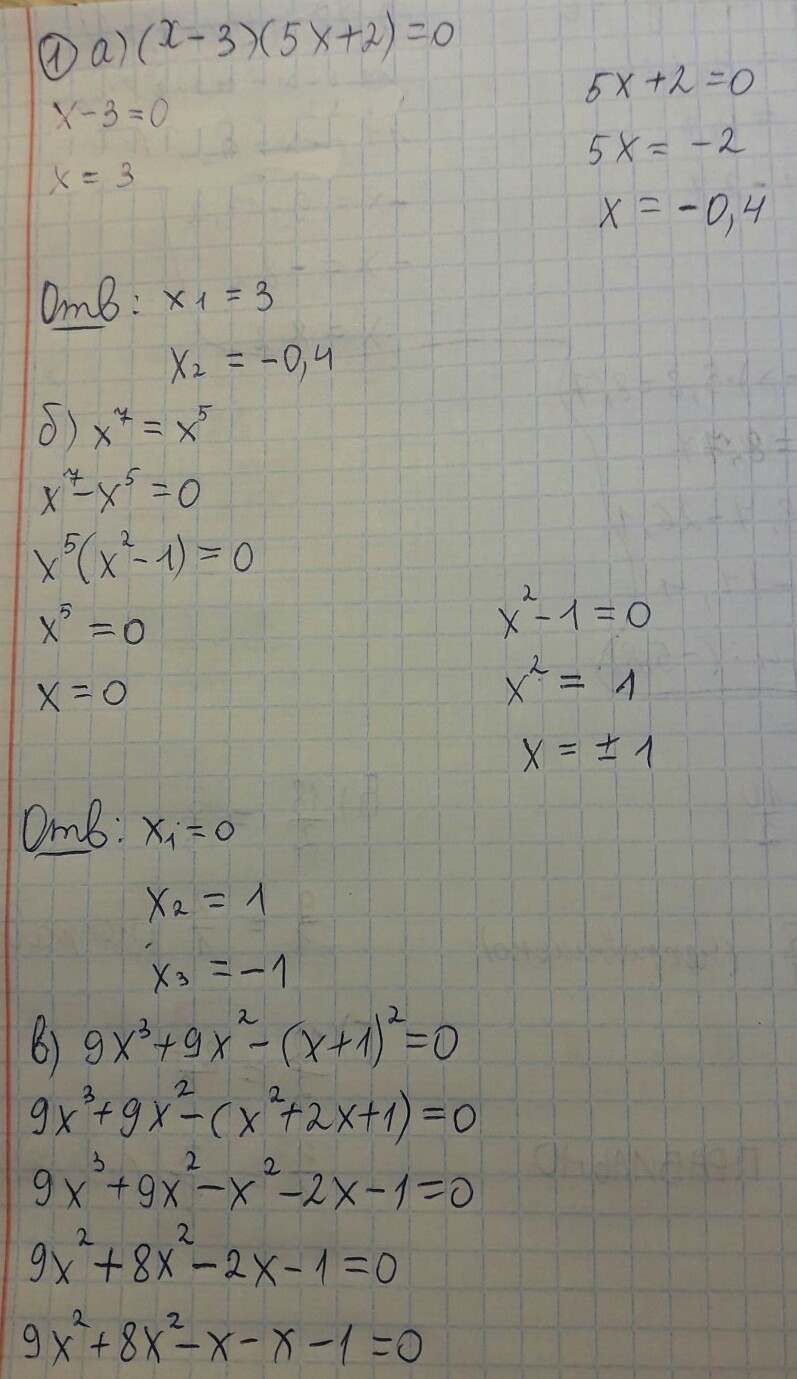 ① а) (x-3)(5x+2)=0
x-3=0
x = 3
5x+2=0
5x = -2
x = -0,4
Отв: x₁ = 3
x₂ = -0,4
б) x⁷ = x⁵
x⁷-x⁵ =0
x⁵(x²-1)=0
x⁵ =0
x = 0
x²-1=0
x² = 1
x = ±1
Отв: x₁=0
x₂ = 1
x₃ = -1
в) 9x³+9x²-(x+1)²=0
9x³+9x²-(x²+2x+1)=0
9x³+9x²-x²-2x-1=0
9x²+8x²-2x-1=0
9x²+8x²-x-x-1=0